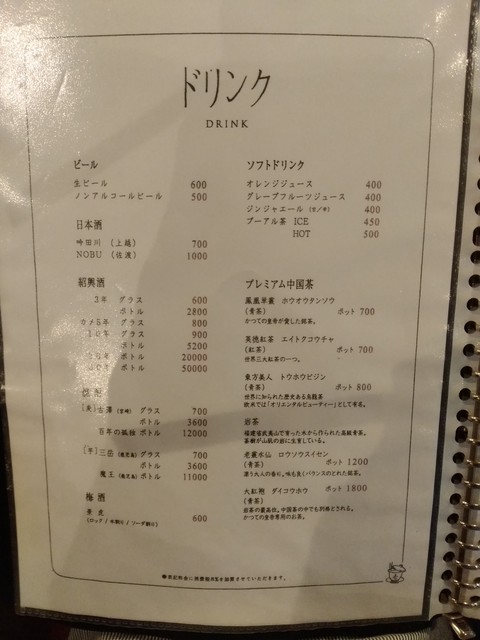 ドリンク
DRINK
ビール
生ビール 600
ノンアルコールビール 500
日本酒
吟田川 (上越) 700
NOBU (佐渡) 1000
紹興酒
3年 グラス 600
ボトル 2800
カメ5年 グラス 800
10年 グラス 900
ボトル 5200
ボトル 20000
ボトル 50000
グラス 700
ボトル 3600
百年の孤独 ボトル 12000
[芋] 三岳 (鹿児島) グラス 700
ボトル 3600
魔王 (鹿児島) ボトル 11000
梅酒
600
(ロック / 水割り / ソーダ割り)
ソフトドリンク
オレンジジュース 400
グレープフルーツジュース 400
ジンジャエール (甘/辛) 400
プーアル茶 ICE 450
HOT 500
プレミアム中国茶
鳳凰単叢 ホウオウタンソウ
(青茶) ポット 700
かつての皇帝が愛した銘茶。
英徳紅茶 エイトクコウチャ
(紅茶) ポット 700
世界三大紅茶の一つ。
東方美人 トウホウビジン
(青茶) ポット 800
世界に知られた歴史ある烏龍茶
欧米では「オリエンタルビューティー」として有名。
岩茶
福建省武夷山で育った木から作られた高級青茶。
茶樹が山肌の岩に生育している。
老叢水仙 ロウソウスイセン
(青茶) ポット 1200
漂う大人の香り。味も良くバランスのとれた銘茶。
大紅袍 ダイコウホウ ポット 1800
(青茶)
岩茶の最高位。中国茶の中でも別格とされる。
かつての皇帝専用のお茶。